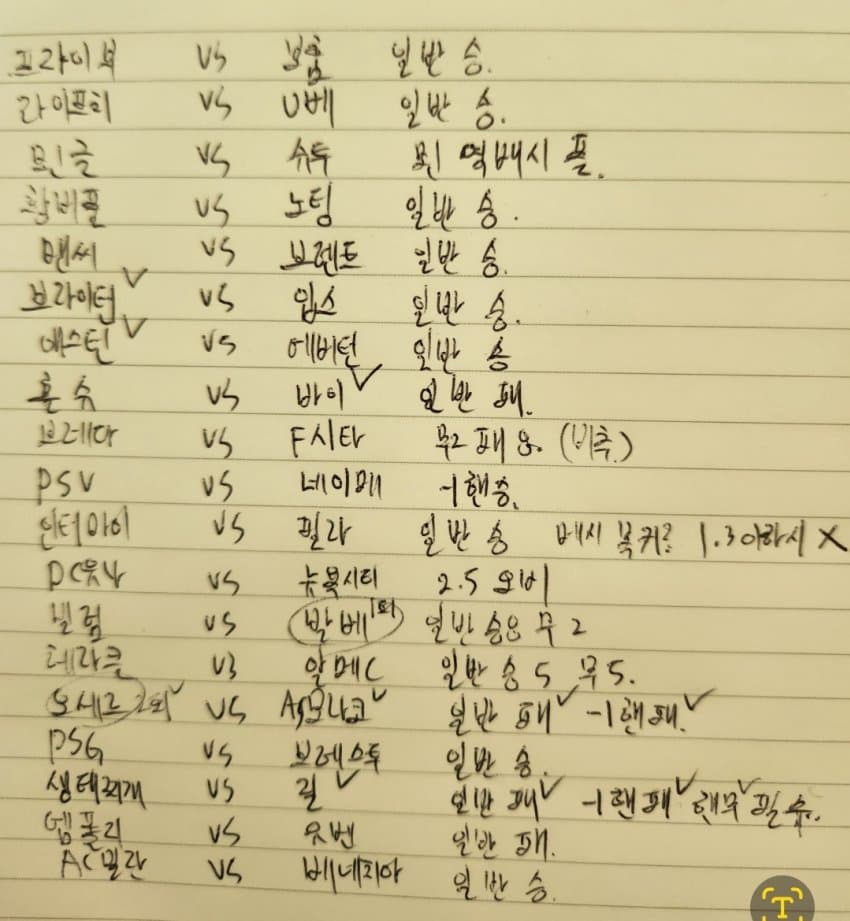 프라이부 VS 보훔 일반 승.
라이프치 VS U베 일반 승.
묀글 VS 슈투 묀 역배시 플.
함버풀 VS 노팅 일반 승.
맨씨 VS 브렌트 일반 승.
브라이턴 VS 입스 일반 승.
에스턴 VS 에버턴 일반 승
홀슈 VS 바이 일반 패.
브레다 VS F시타 무2 패8. (비추.)
PSV VS 네이메 -1핸승.
인터마이 VS 필라 일반 승 메시 복귀로 1.3이하시 X
DC유나 VS 뉴욕시티 2.5 오버
빌럼 VS 발베 1회 일반 승8 무2
테라클 VS 알메C 일반 승5 무5.
오세르 2회 VS AS모나코 일반 패 -1핸패.
PSG VS 브레스투 일반 승.
생테치개 VS 릴 일반 패 -1핸패 핸무 필승.
엠폴리 VS 유벤 일반 패.
AC밀란 VS 베네치아 일반 승.